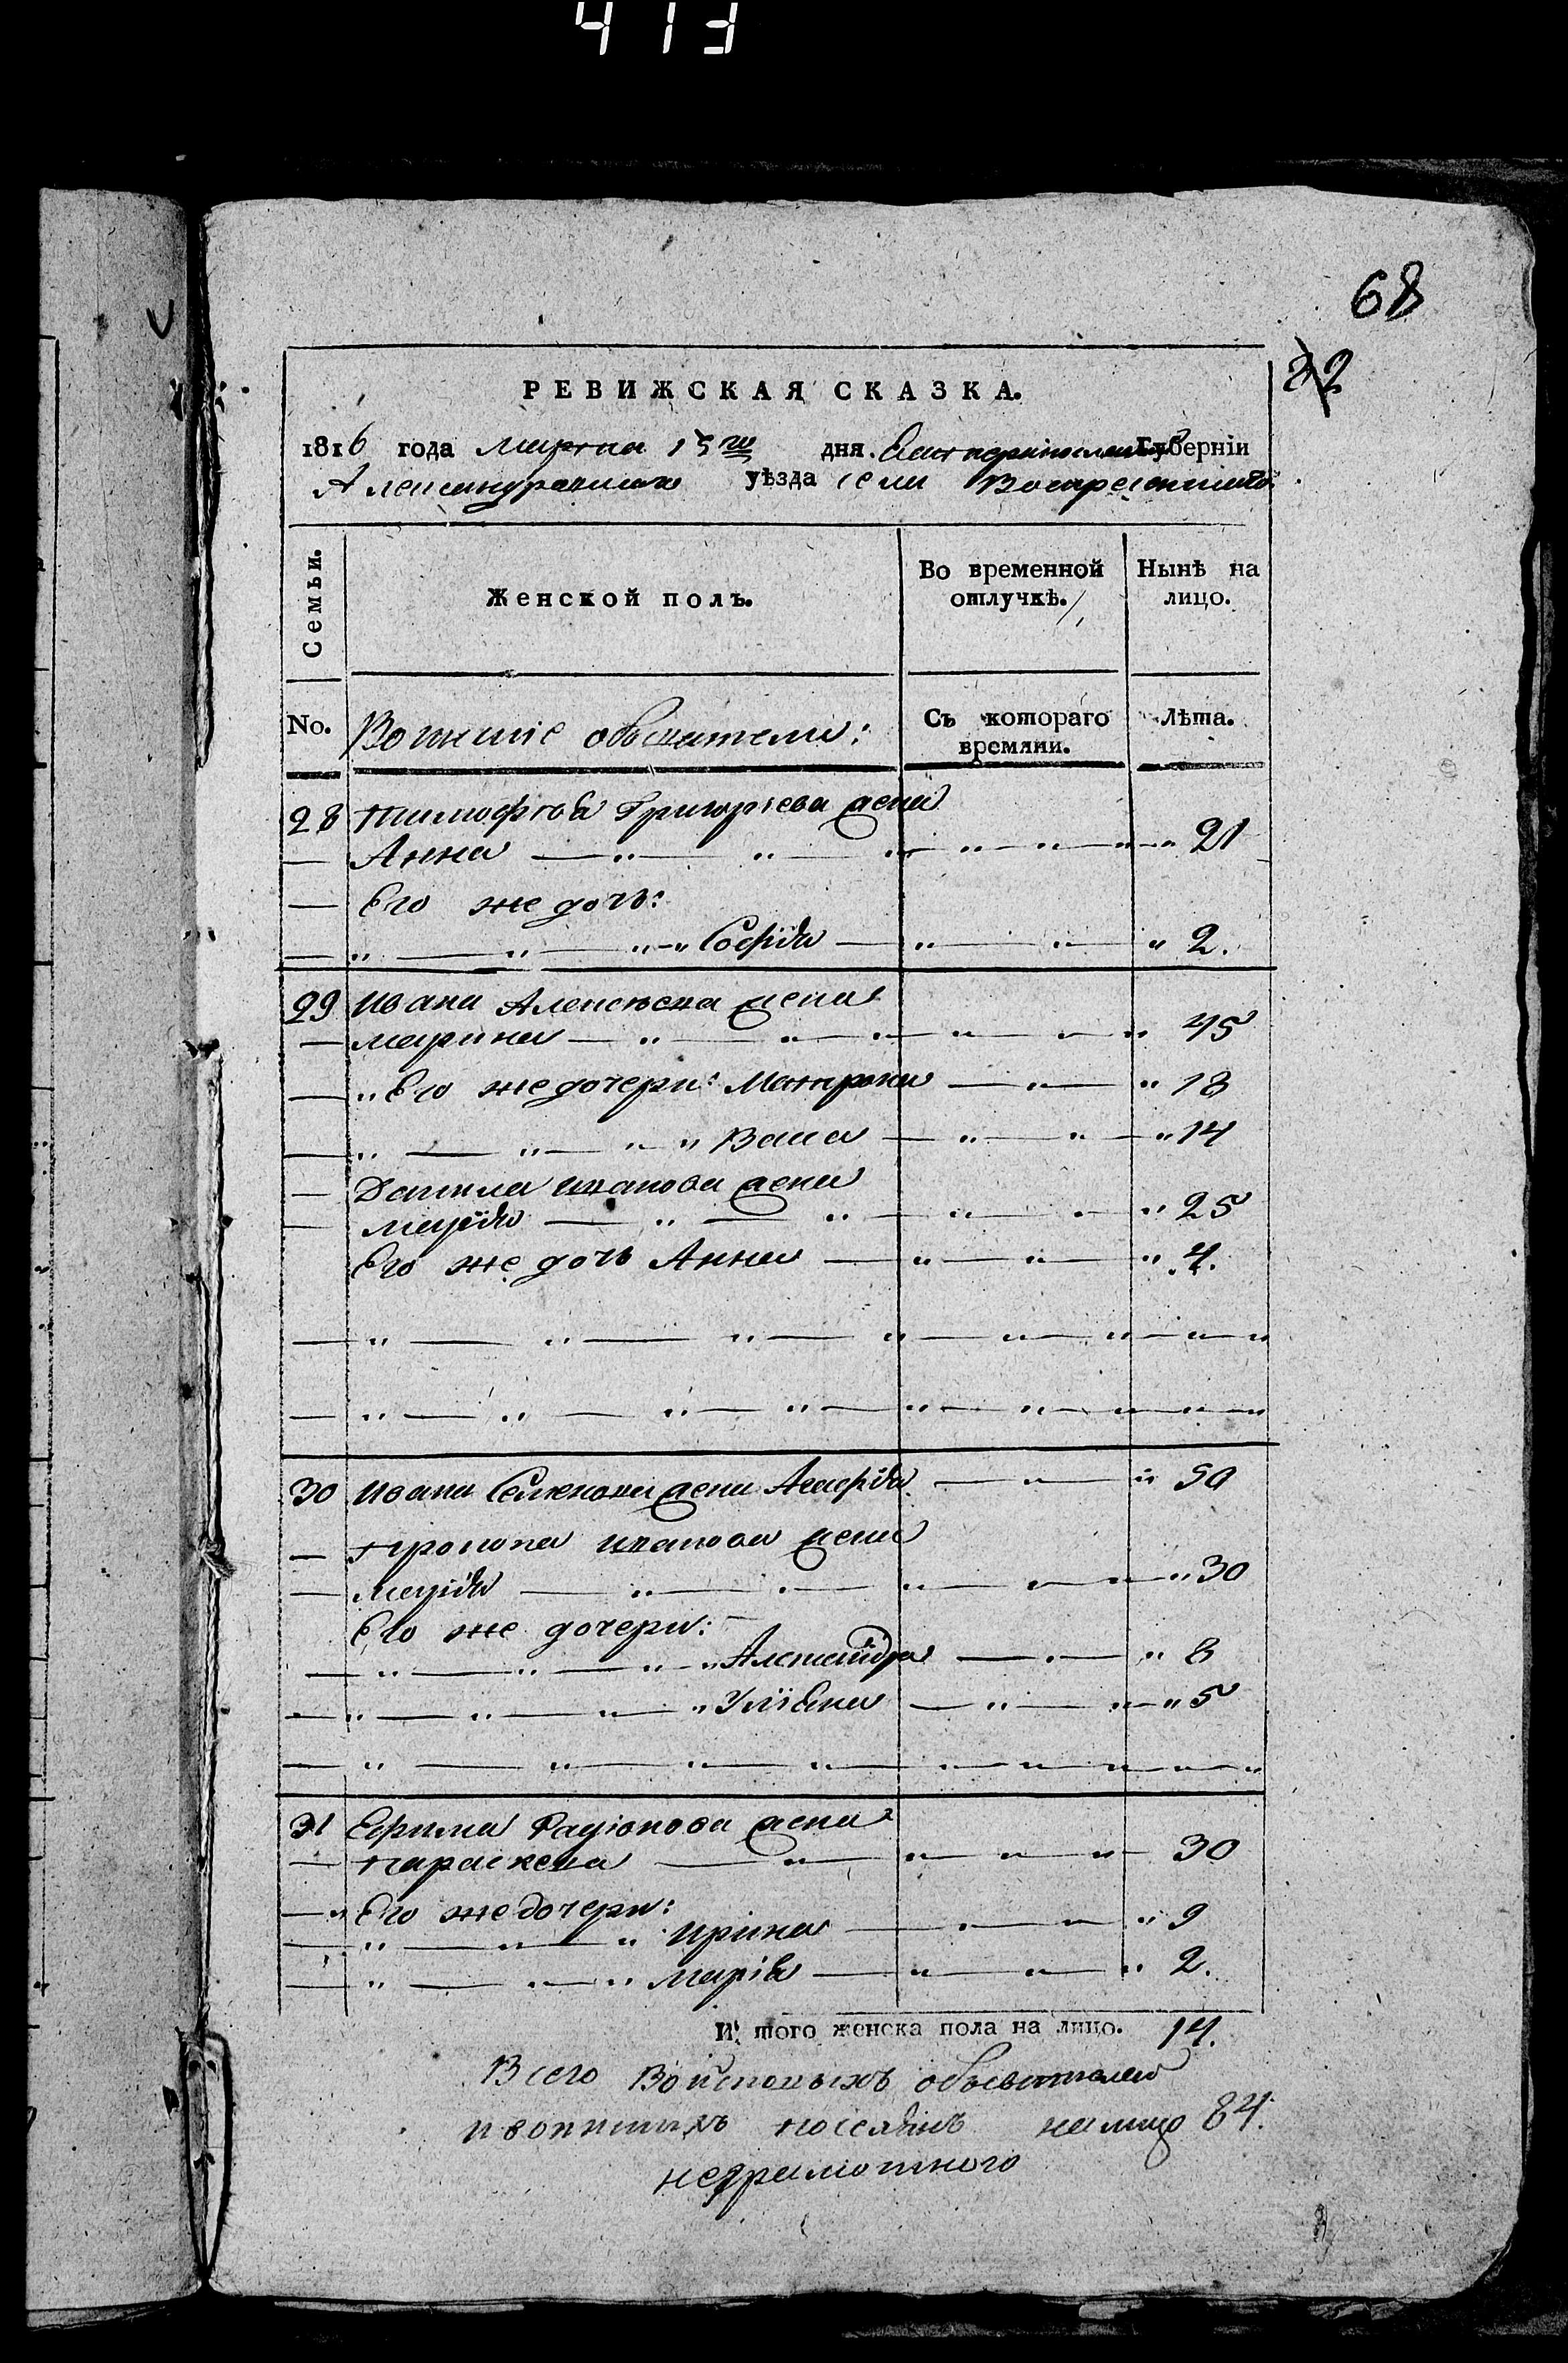 413
68
22
РЕВИЖСКАЯ СКАЗКА.
1816 года Марта 15го дня. Екатеринославской Губерніи
Александровска уѣзда села Воскресенскаго
Семьи.
Женской полъ.
Во временной отлучкѣ.
Нынѣ на лицо.
No.
Воинскіе обыватели:
Съ котораго времяни.
Лѣта.
28 Тимофѣя Григорьева жена
Анна 21
Его же дочь:
Софія 2.
29 Ивана Алексѣева жена
Марина 45
Его же дочери: Матрона 18
Васа 14
Данила Иванова жена
Марія 25
Его же дочь Анна 4.
30 Ивана Семенова жена Агафія 50
Прокопа Иванова жена
Марія 30
Его же дочери:
Александра 8
Уліяна 5
31 Ефима Радіонова жена
Параскева 30
Его же дочери:
Ирина 9
Марія 2.
И того женска пола на лицо. 14.
Всего Войсковыхъ обывателей
и воинскихъ поселянъ на лицо 84.
неграмотного